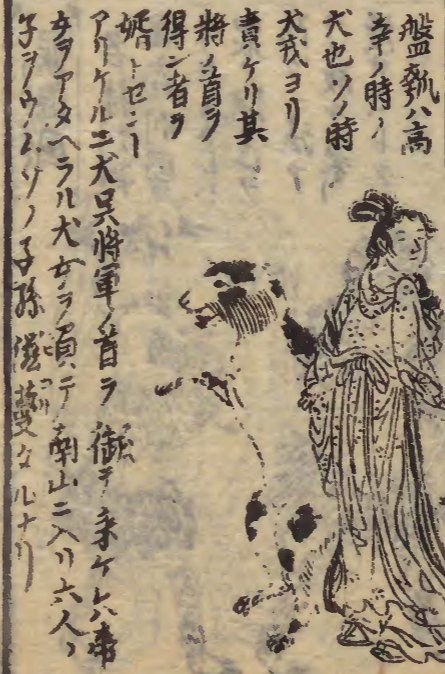 盤瓠ハ高
辛ノ時ノ
犬也ソノ時
犬戎ヨリ
責ケリ其
將ノ首ヲ
得ン者ヲ
婿トセント
アリケルニ犬呉將軍ノ首ヲ御テ来ケレハ帝
女ヲアタヘラル犬女ヲ負テ南山ニ入リ六人ノ
子ヲウムソノ子孫タルナリ